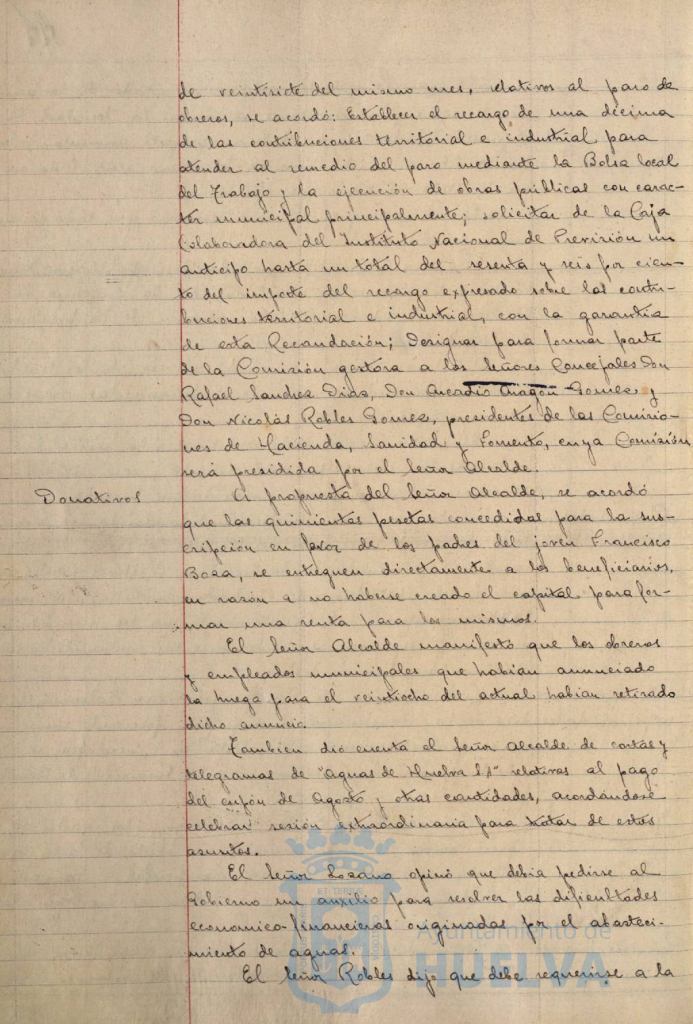 de veintisiete del mismo mes, relativos al paro de
obreros, se acordó: Establecer el recargo de una décima
de las contribuciones territorial e industrial para
atender al remedio del paro mediante la Bolsa local
del Trabajo y la ejecución de obras públicas con carac-
ter municipal principalmente; solicitar de la Caja
Colaboradora del Instituto Nacional de Previsión un
anticipo hasta un total del sesenta y seis por cien-
to del importe del recargo expresado sobre las contri-
buciones territorial e industrial, con la garantía
de esta Recaudación; Designar para formar parte
de la Comisión gestora a los Señores Concejales Don
Rafael Sanchez Diaz, Don Arcadio Aragón Gomez y
Don Nicolás Robles Gomez, presidentes de las Comisio-
nes de Hacienda, Sanidad y Fomento, cuya Comisión
será presidida por el Señor Alcalde.
Donativos
A propuesta del Señor Alcalde, se acordó
que las quinientas pesetas concedidas para la sus-
cripción en favor de los padres del joven Francisco
Boza, se entreguen directamente a los beneficiarios,
en razón a no haberse creado el capital para for-
mar una renta para los mismos.
El Señor Alcalde manifestó que los obreros
y empleados municipales que habían anunciado
la huega para el veintiocho del actual habían retirado
dicho anuncio.
Tambien dió cuenta el Señor Alcalde de cartas y
telegramas de "Aguas de Huelva S.A" relativas al pago
del cupón de Agosto y otras cantidades, acordándose
celebrar sesión extraordinaria para tratar de estos
asuntos.
El Señor Lozano opinó que debía pedirse al
Gobierno un auxilio para resolver las dificultades
economico-financieras originadas por el abasteci-
miento de aguas.
El Señor Robles dijo que debe requerirse a la
Ayuntamiento de
HUELVA